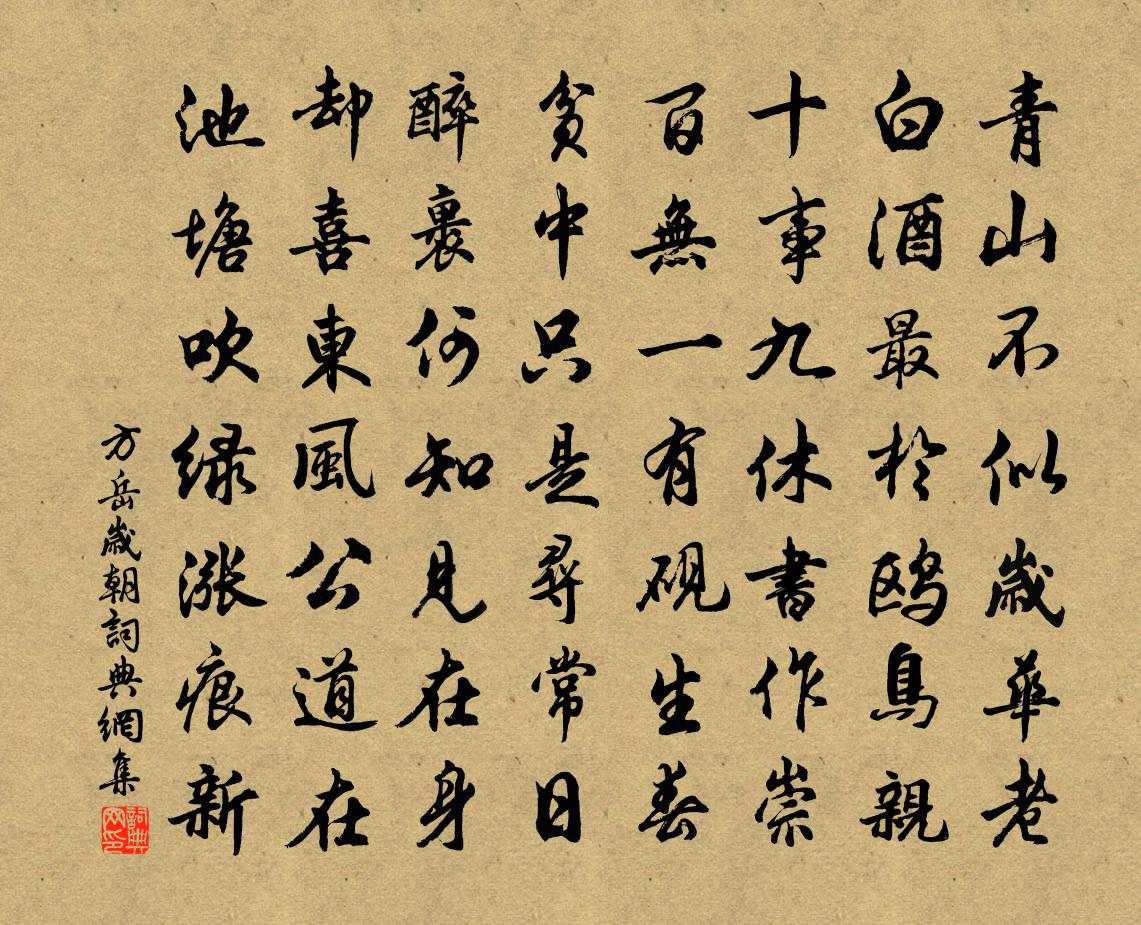 青山不似歲華老
白酒最於鷗鳥親
十事九休書作崇
百無一有硯生春
貧中只是尋常日
醉裏何知見在身
却喜東風公道在
池塘吹綠漲痕新
方岳歲朝詞典網集
詞典网印